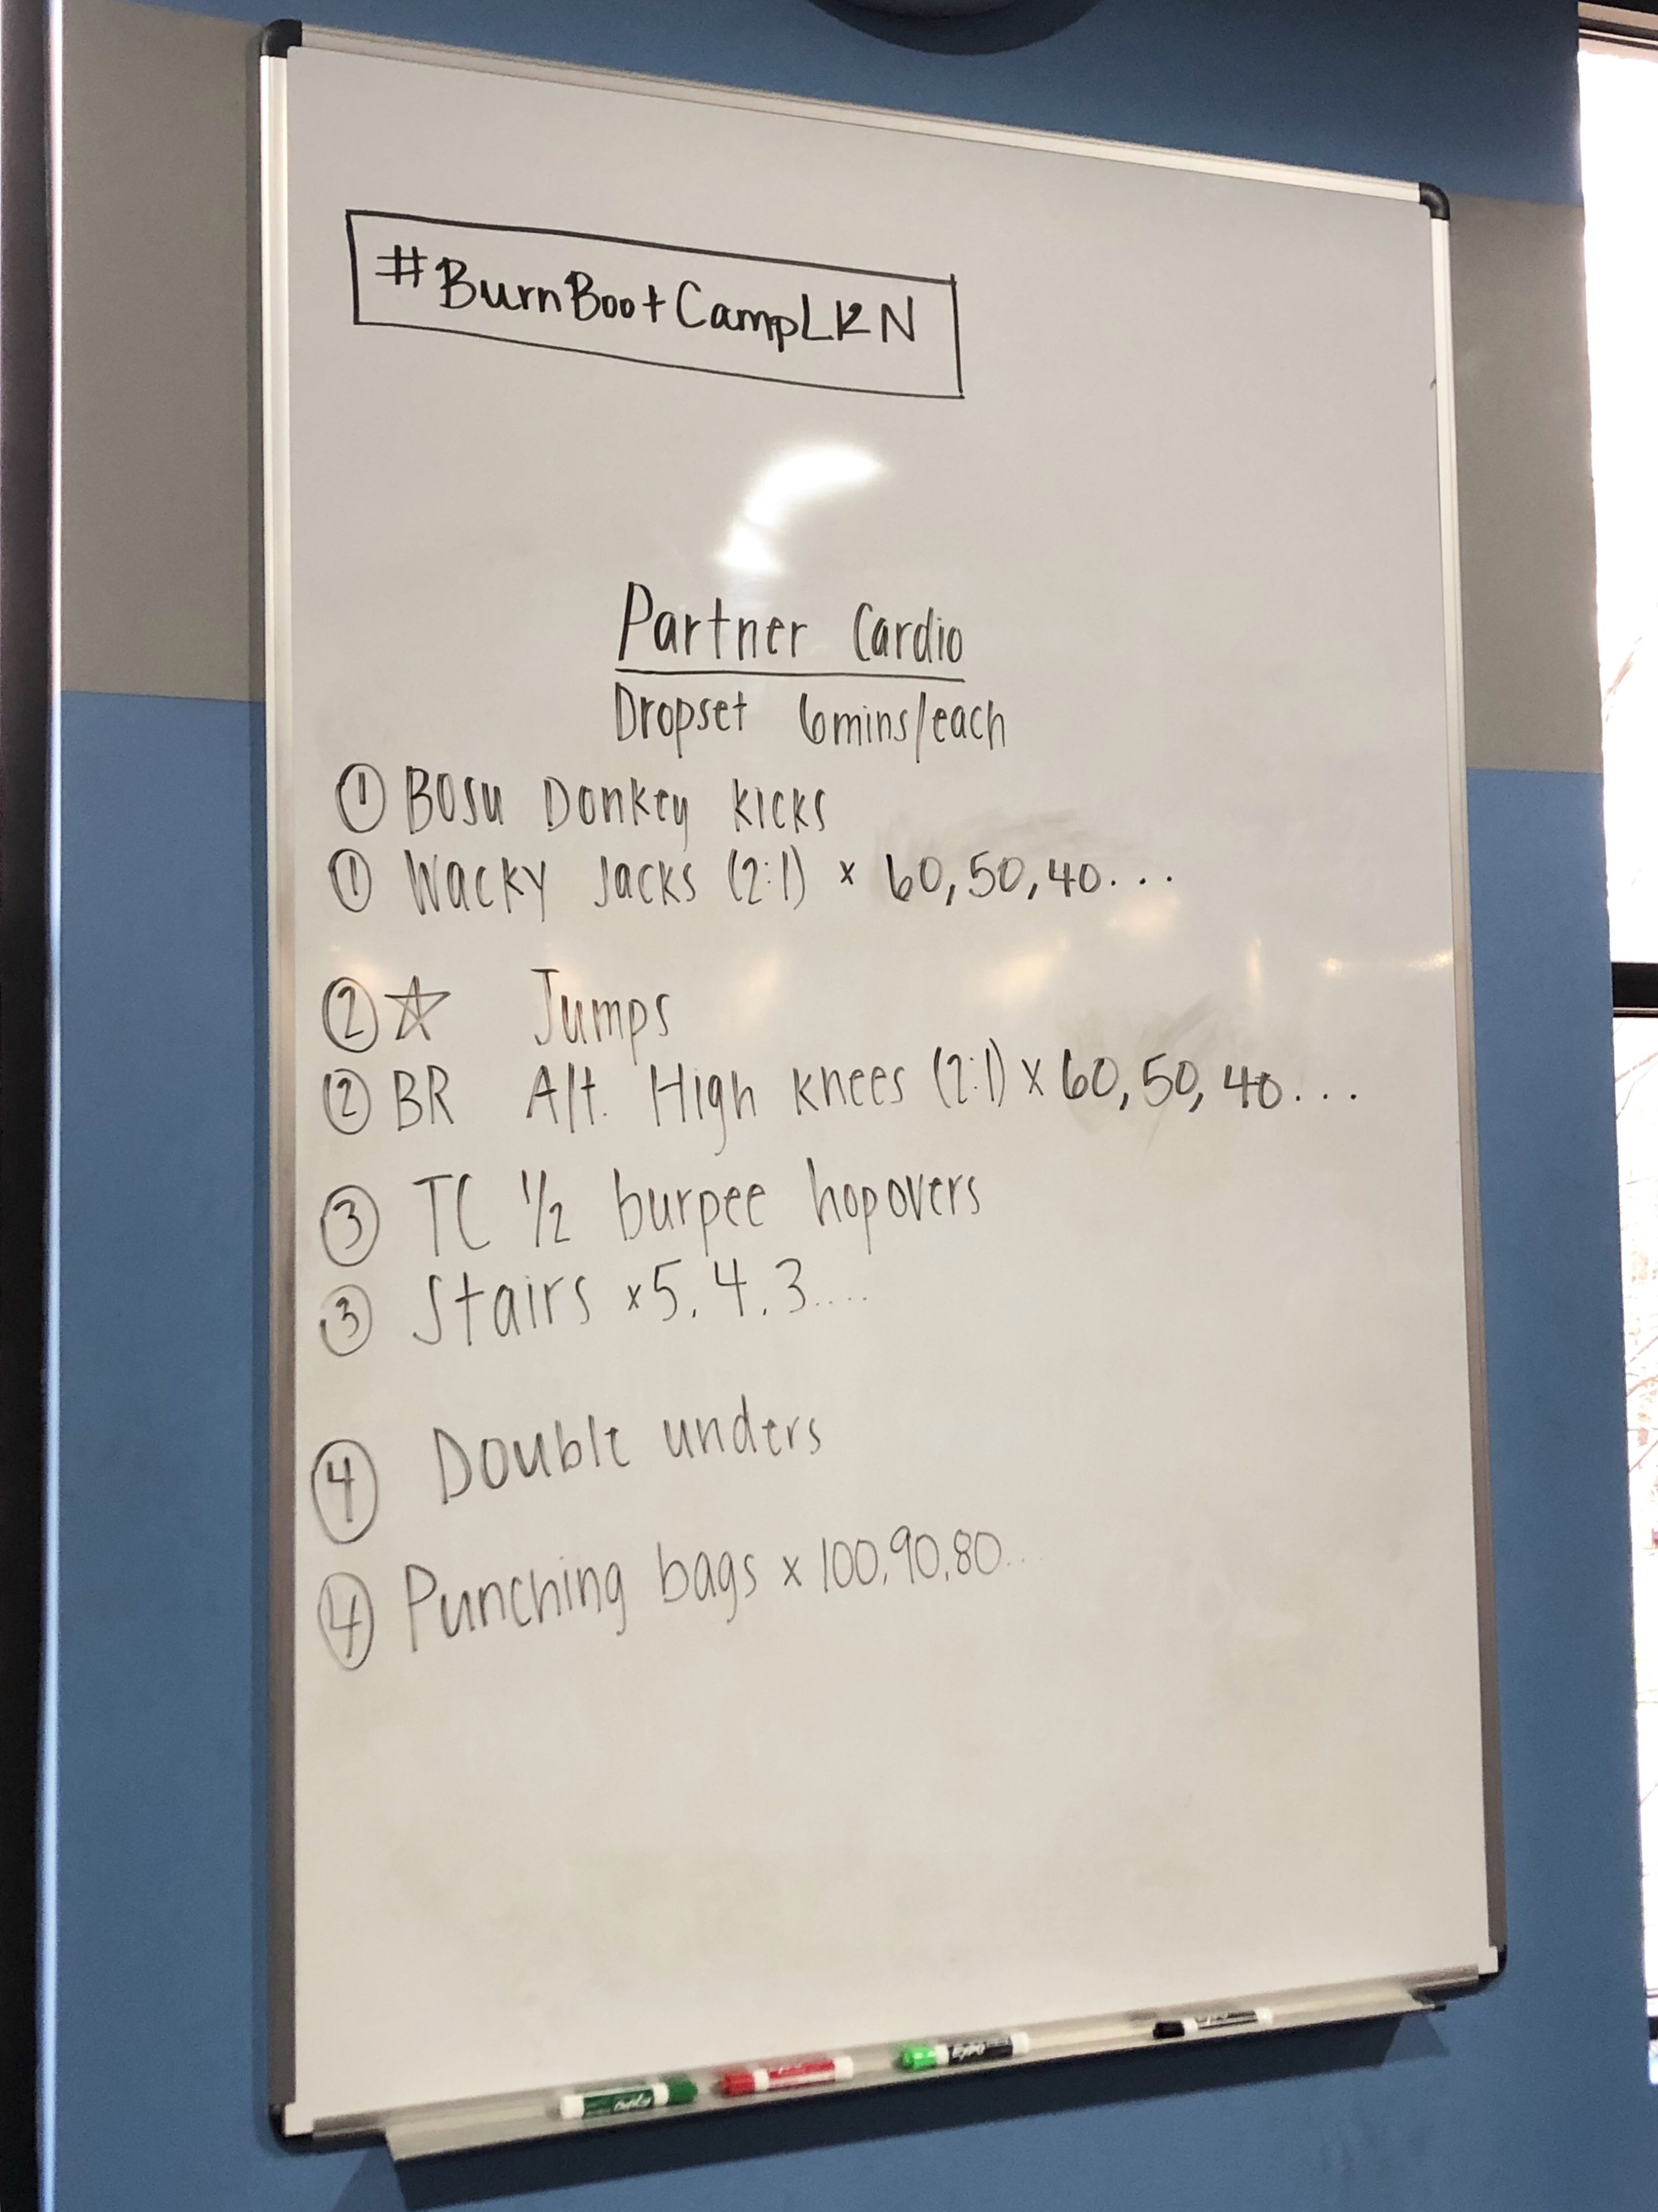 #BurnBootCampLKN
Partner Cardio
Dropset 6mins/each
① BOSU Donkey kicks
① Wacky Jacks (2:1) x 60, 50, 40...
② ☆ Jumps
② BR Alt. High knees (2:1) x 60, 50, 40...
③ TC 1/2 burpee hopovers
③ Stairs x 5, 4, 3....
④ Double unders
④ Punching bags x 100, 90, 80....